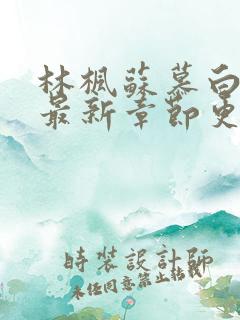 林楓蘇慕白
最新章節更
時裝設計師
未經同意禁止轉載